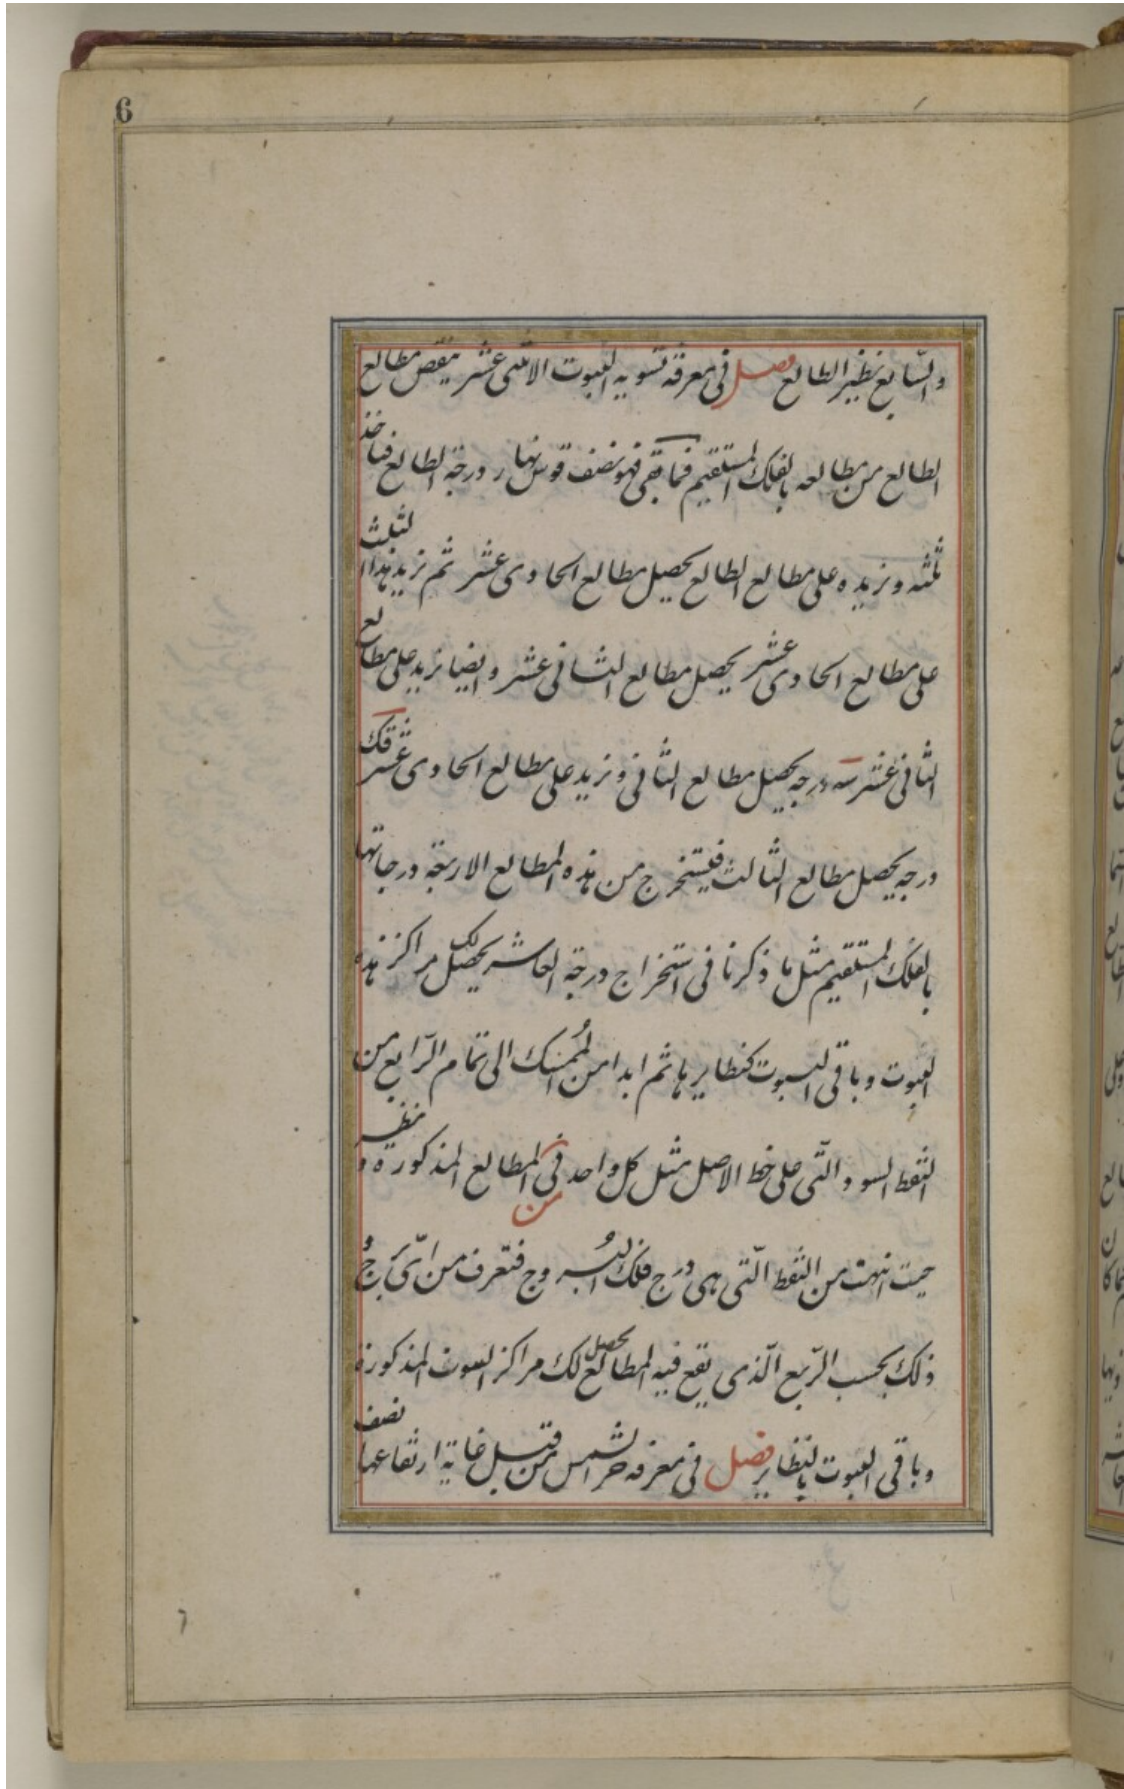 6
والسابع نظير الطالع فصل فى معرفة تسوية البيوت الاثنى عشر ينقص مطالع
الطالع من مطالعه بالفلك المستقيم فما بقى فهو نصف قوس نهار درجة الطالع فياخذ
ثلثه ونزيده على مطالع الطالع يحصل مطالع الحادى عشر ثم نزيد هذا الثلث
على مطالع الحادى عشر يحصل مطالع الثانى عشر وايضا نزيد على مطالع
الثانى عشر سه درجه يحصل مطالع الثانى ونزيد على مطالع الحادى عشر قك
درجه يحصل مطالع الثالث فيستخرج من هذه المطالع الاربعة درجاتها
بالفلك المستقيم مثل ما ذكرنا فى استخراج درجة العاشر يحصل لك مراكز هذه
البيوت وباقى البيوت كنظايرها ثم ابدا من الى تمام الرابع من
النقط السود التى على خط الاصل مثل كل واحد فى من المطالع المذكورة ونظير
حيث انتهت من النقط التى هى درج فلك البروج فتعرف من اىّ برج
ذلك بحسب الربع الذى يقع فيه المطالع يحصل لك مراكز البيوت المذكورة
وباقى البيوت بالنظاير فصل فى معرفة الشمس من قبل غاية ارتفاعها نصف
٦